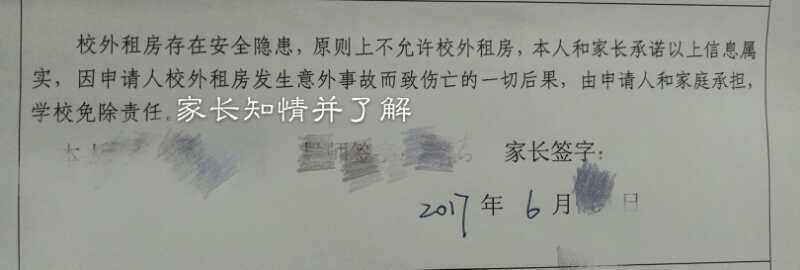 校外租房存在安全隐患，原则上不允许校外租房，本人和家长承诺以上信息属
实，因申请人校外租房发生意外事故而致伤亡的一切后果，由申请人和家庭承担，
学校免除责任。家长知情并了解
家长签字：
2017 年 6 月 日